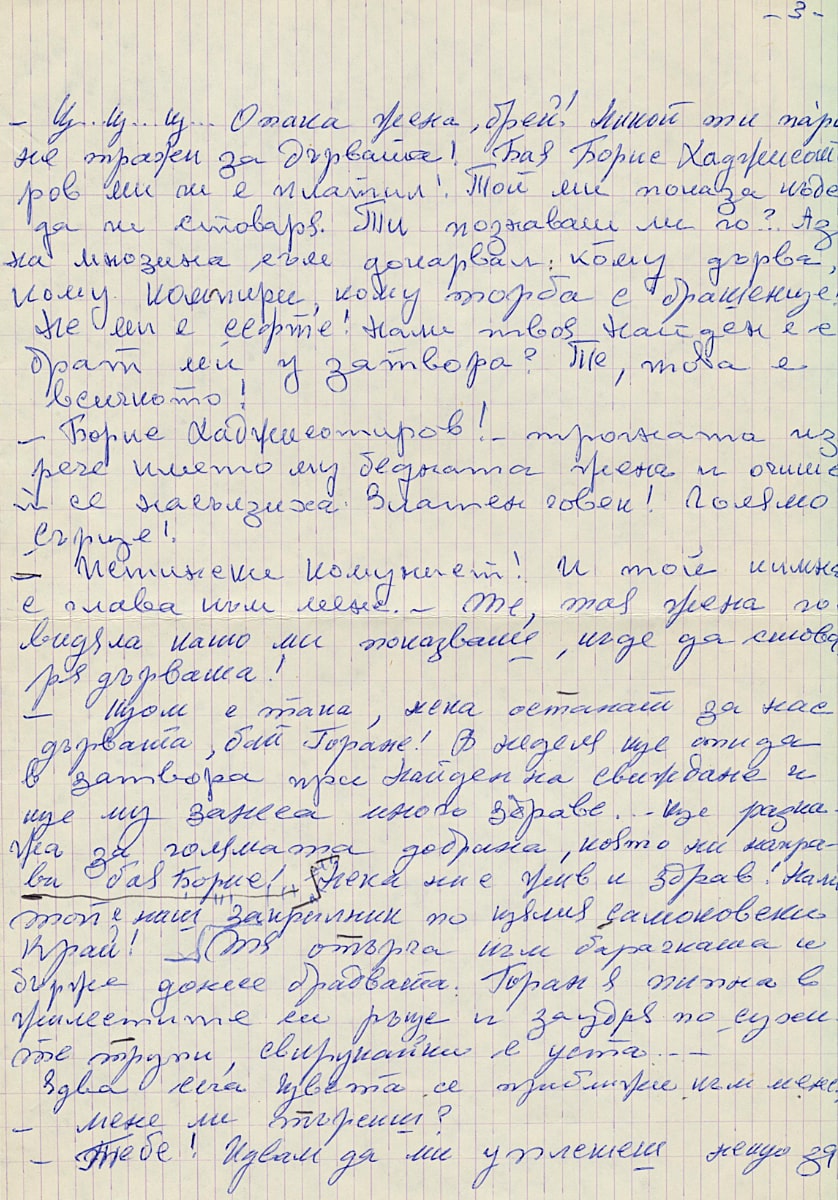 - 3 -
- Щ... Щ... Щ... Опака жена, брей! Никой ти пари
не тражи за дървата! Бая Борис Хаджисоти
ров ми ги е платил! Той ми показа къде
да ги стоваря. Ти познаваш ли го? Аз
на мнозина съм докарвал: кому дърва,
кому компири, кому торба с брашенце!
Не ми е сефте! Нали твоя Найден е с
брат ми у затвора? Те, това е
всичкото!
- Борис Хаджисотиров! - трогната из
рече името му бедната жена и очите
ѝ се насълзиха. Златен човек! Голямо
сърце!
- Истински комунист! И той кимна
с глава към мене. - Те, тая жена го
видяла като ми показваше, къде да стова
ря дървата!
- Щом е така, нека останат за нас
дървата, бай Горане! В неделя ще отида
в затвора при Найден на свиждане и
ще му занеса много здраве... Ще разка
жа за голямата добрина, която ни напра-
ви бая Борис! Нека ни е жив и здрав! Нали
той е наш закрилник по целия самоковски
край! Тя отърча към барачката и
бърже донесе брадвата. Горан я пипна в
жилестите си ръце и заудря по сухи
те трупи, свирукайки с уста...
Едва сега Цвета се приближи към мене.
- Мене ли търсиш?
- Тебе! Идвам да ми уплетеш нещо за